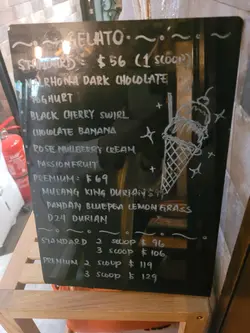 GELATO
STANDARD: $56 (1 SCOOP)
VALRHONA DARK CHOCOLATE
YOGHURT
BLACK CHERRY SWIRL
CHOCOLATE BANANA
ROSE MULBERRY CREAM
PASSIONFRUIT
PREMIUM: $69
MUSANG KING DURIAN
PANDAN BLUEPEA LEMONGRASS
D24 DURIAN
STANDARD 2 SCOOP $96
3 SCOOP $106
PREMIUM 2 SCOOP $119
3 SCOOP $129